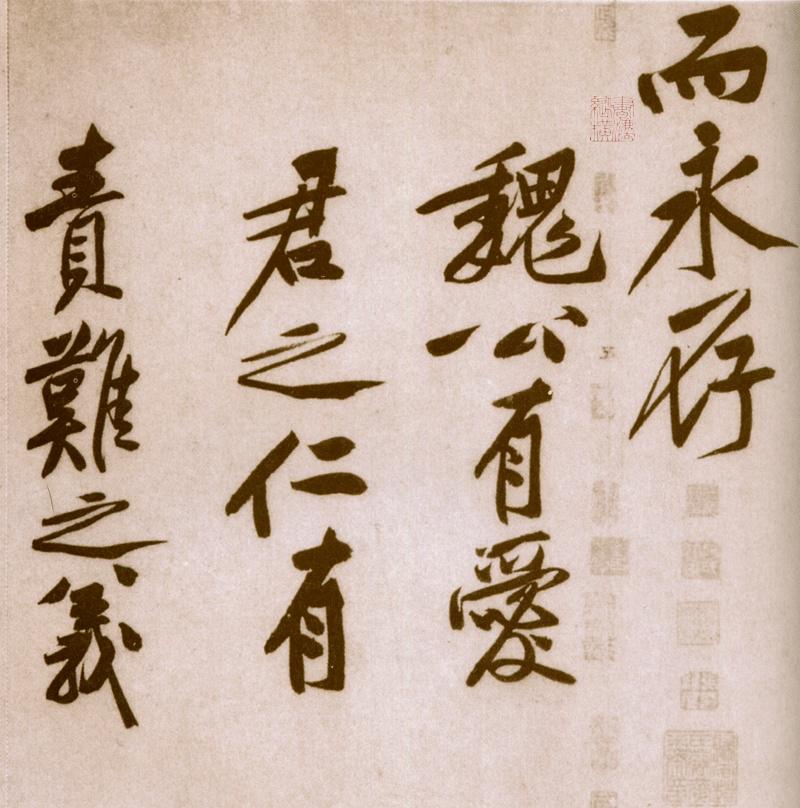 而永存
魏公有愛
君之仁有
責難之義